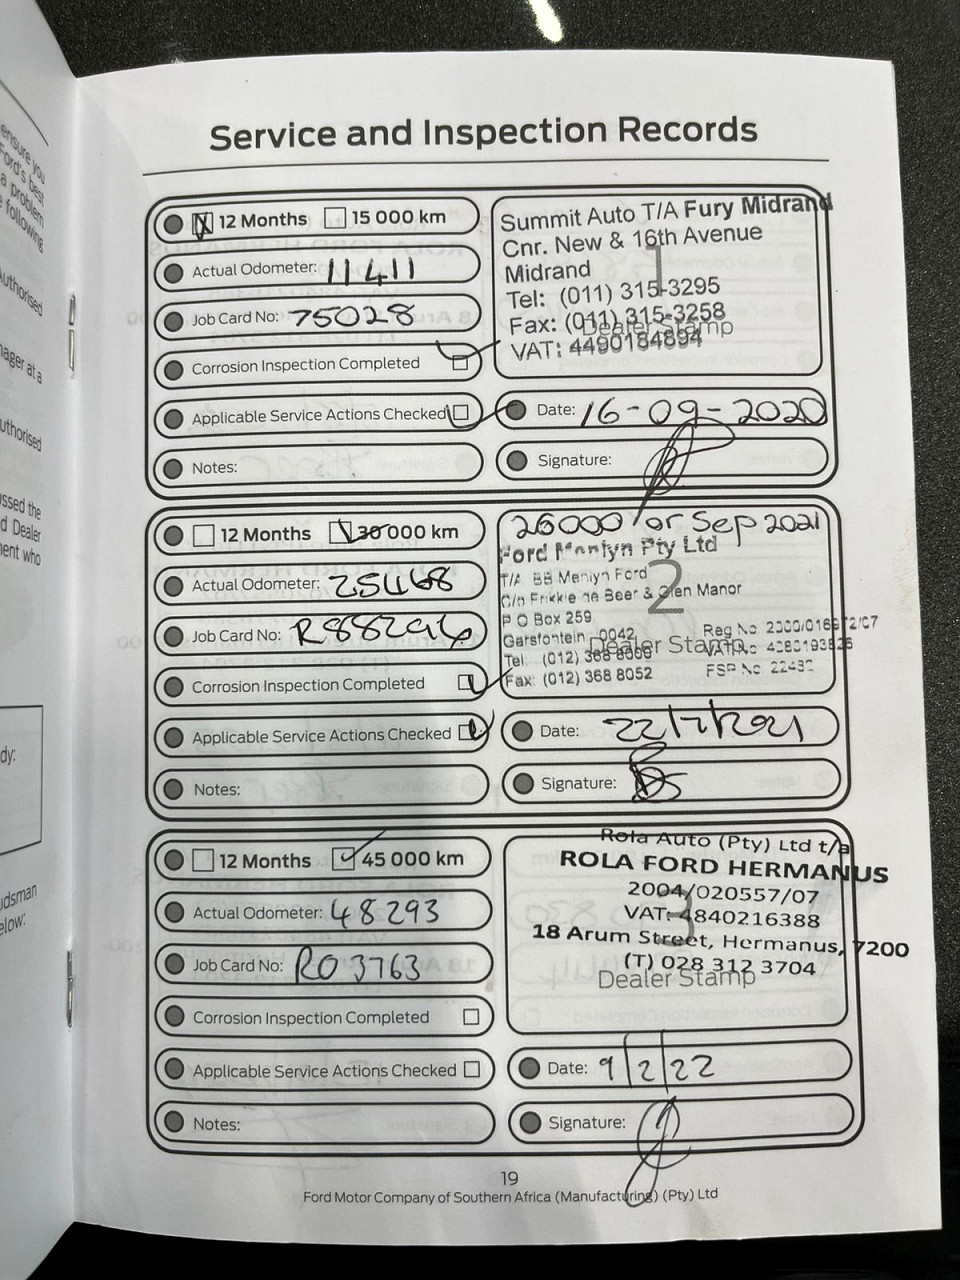 ensure you
Ford's best
a problem
following
Authorised
nager at a
uthorised
ssed the
d Dealer
ent who
dy:
udsman
elow:
Service and Inspection Records
12 Months 15 000 km
Actual Odometer: 11411
Job Card No: 75028
Corrosion Inspection Completed
Applicable Service Actions Checked
Notes:
Summit Auto T/A Fury Midrand
Cnr. New & 16th Avenue
Midrand
1
Tel: (011) 315-3295
Fax: (011) 315-3258
Dealer Stamp
VAT: 4490184894
Date: 16-09-2020
Signature:
12 Months 30 000 km
Actual Odometer: 25468
Job Card No:
Corrosion Inspection Completed
Applicable Service Actions Checked
Notes:
26000 or Sep 2021
Ford Menlyn Pty Ltd
T/A BB Menlyn Ford
2
C/o Frikkie de Beer & Glen Manor
P O Box 259
Garsfontein 0042
Dealer Stamp
Tel: (012) 368 8000
Fax: (012) 368 8052
Reg No
VAT No
FSP No
Date: 22/7/2021
Signature:
12 Months 45 000 km
Actual Odometer: 48293
Job Card No: RO3763
Corrosion Inspection Completed
Applicable Service Actions Checked
Notes:
Rola Auto (Pty) Ltd t/a
ROLA FORD HERMANUS
2004/020557/07
VAT: 4840216388
3
18 Arum Street, Hermanus, 7200
(T) 028 312 3704
Dealer Stamp
Date: 9/2/22
Signature:
19
Ford Motor Company of Southern Africa (Manufacturing) (Pty) Ltd